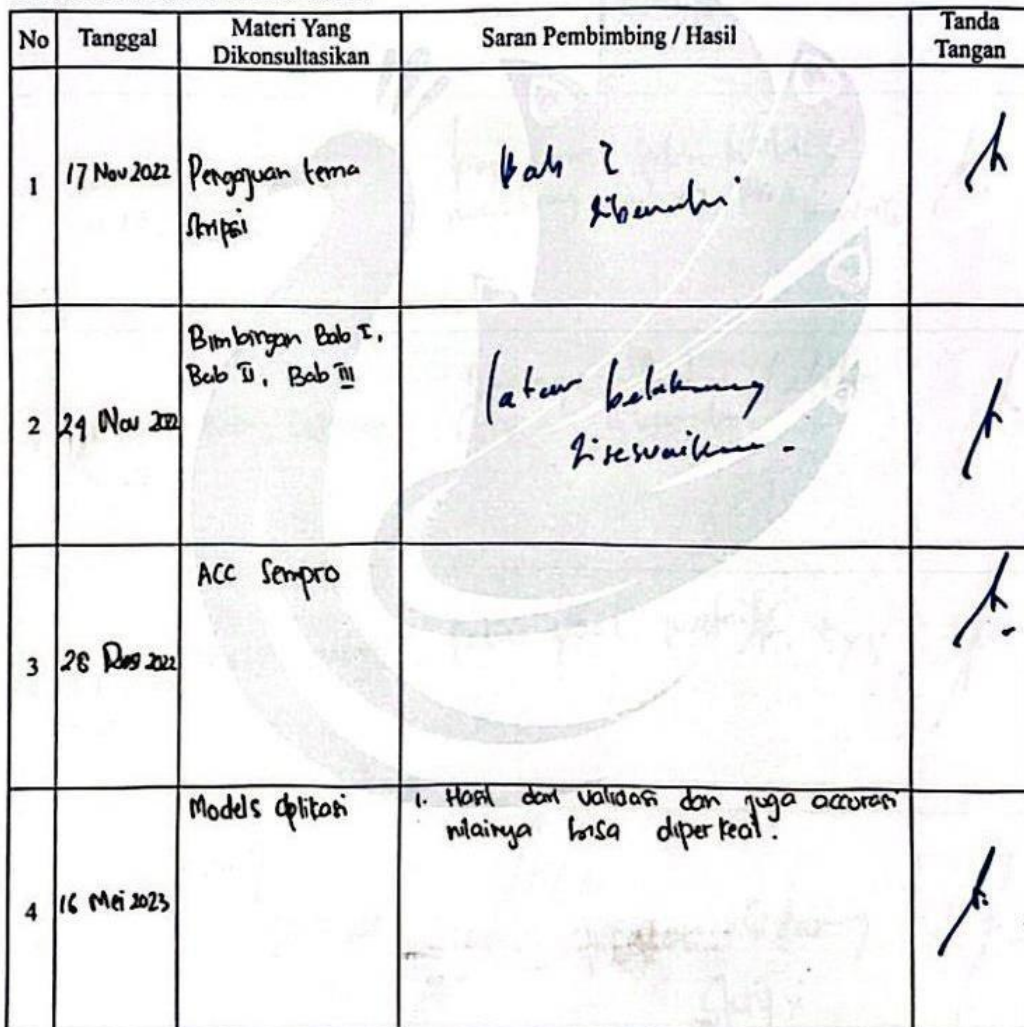 No Tanggal Materi Yang Dikonsultasikan Saran Pembimbing / Hasil Tanda Tangan
1 17 Nov 2022 Pengajuan tema
skripsi
Bab 2
dibenahi
2 24 Nov 2022 Bimbingan Bab I,
Bab II, Bab III
latar belakang
disesuaikan.
3 28 Des 2022 ACC Sempro
4 16 Mei 2023 Models aplikasi
1. Hasil dari validasi dan juga accurasi
nilainya bisa diperkecil.